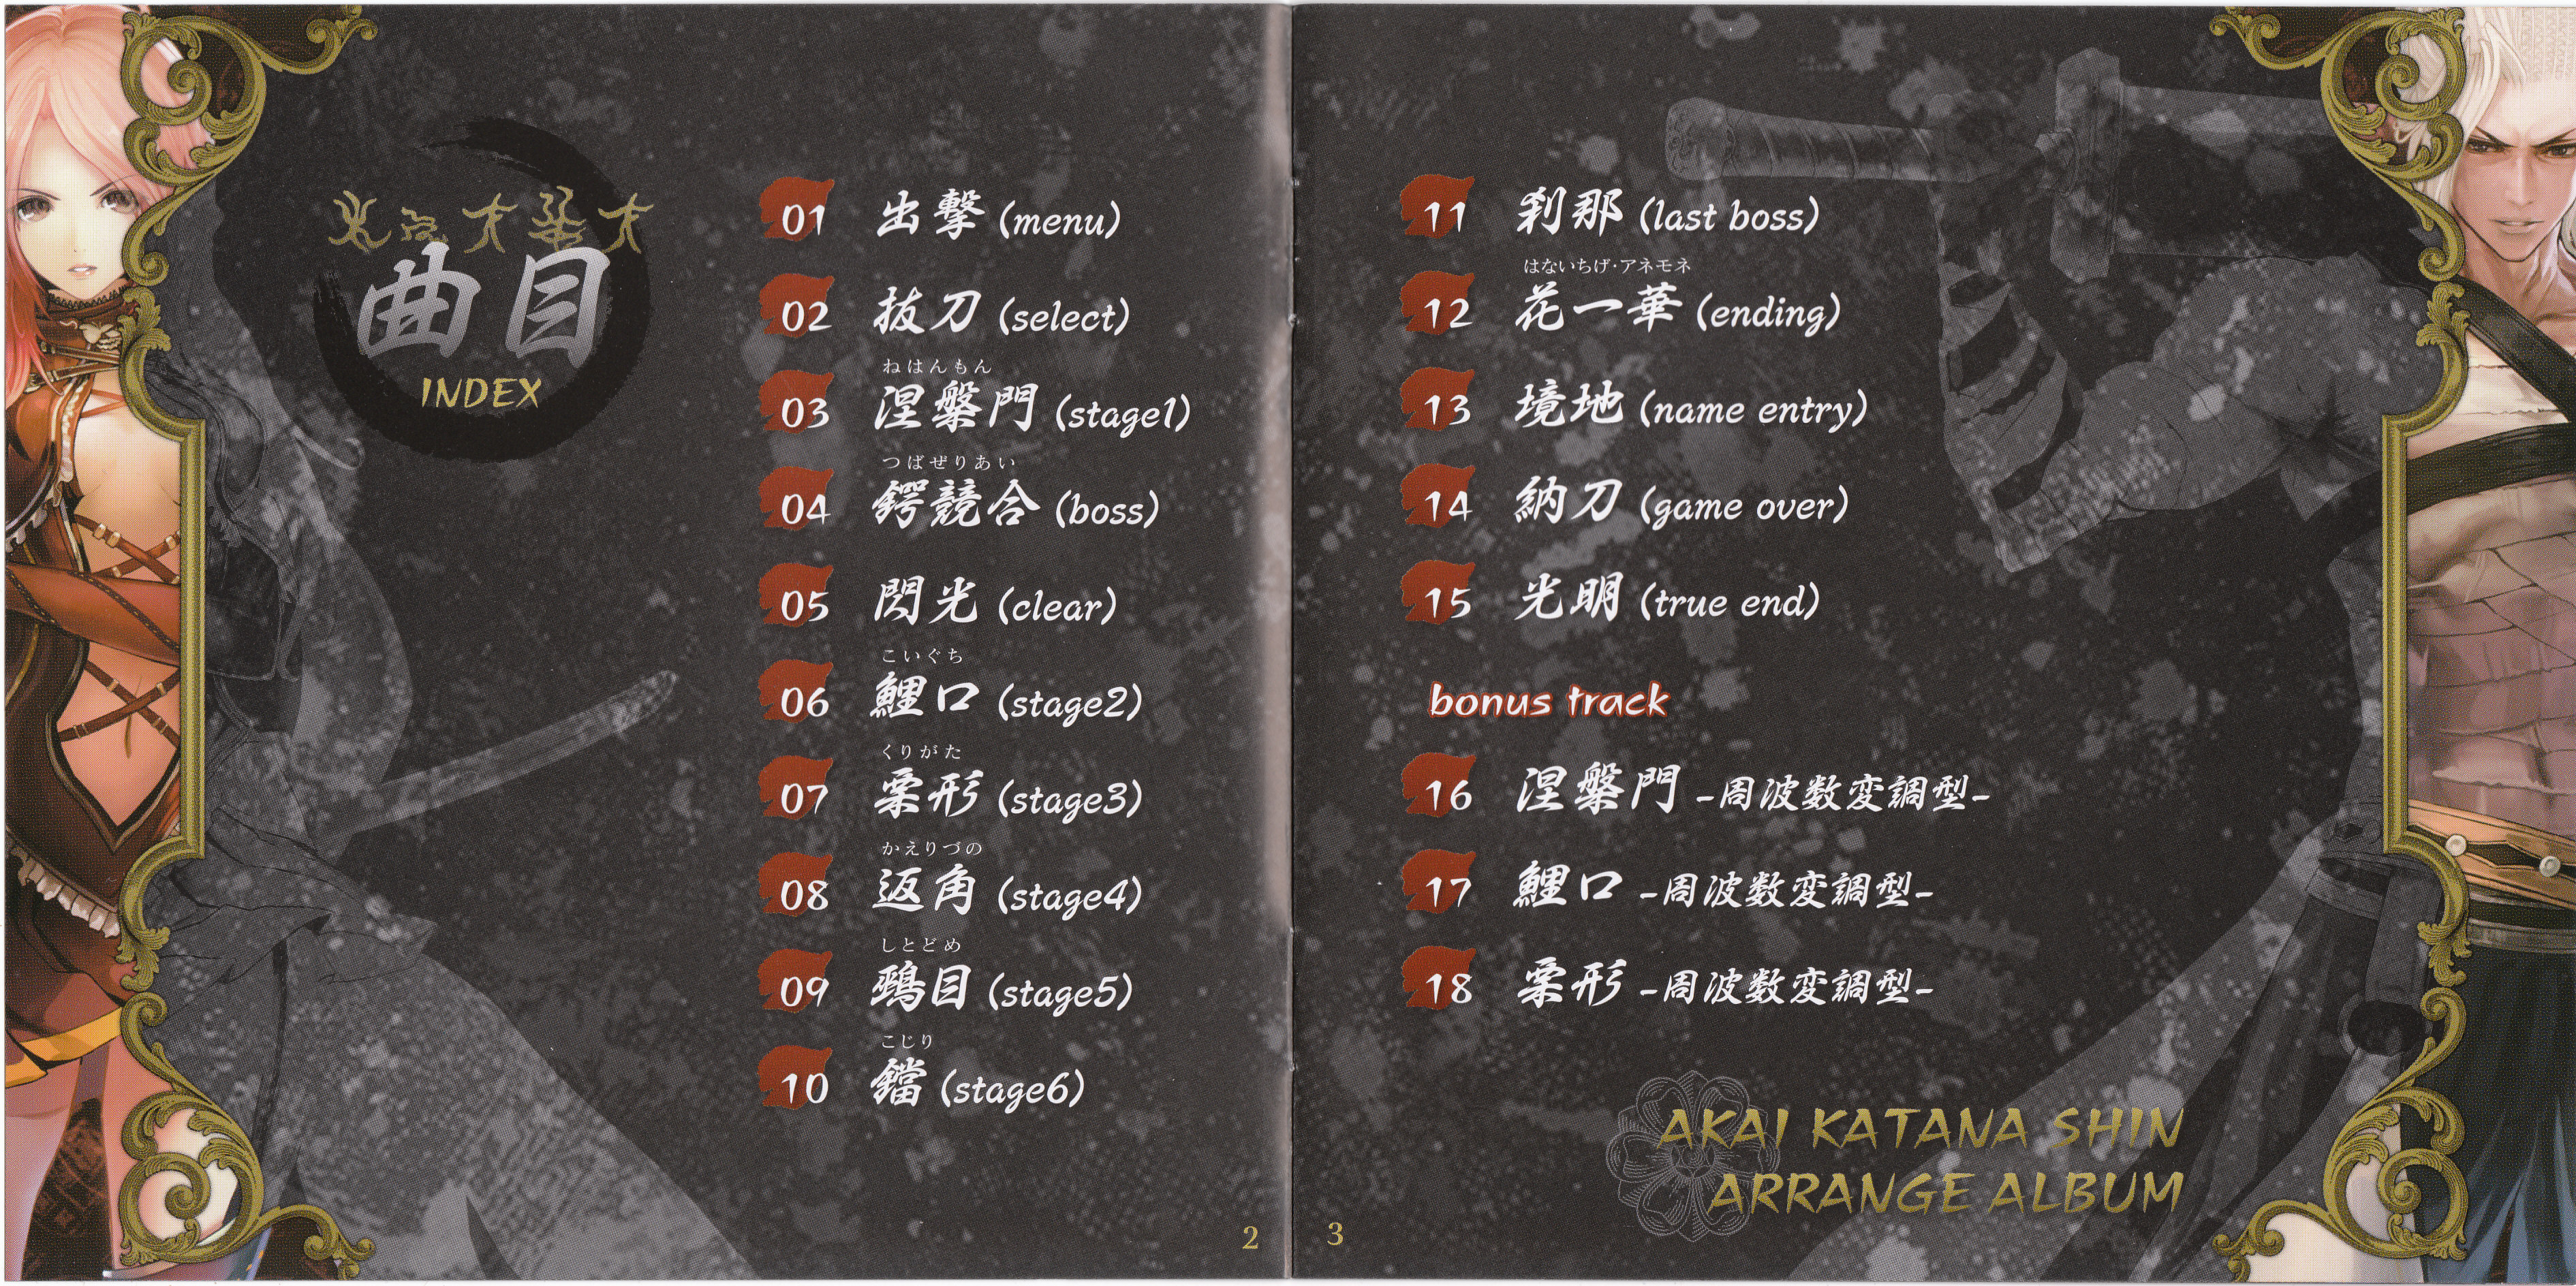 曲目
INDEX
01 出撃 (menu)
02 抜刀 (select)
ねはんもん
03 涅槃門 (stage1)
つばぜりあい
04 鍔競合 (boss)
05 閃光 (clear)
こいぐち
06 鯉口 (stage2)
くりがた
07 栗形 (stage3)
かえりづの
08 返角 (stage4)
しとどめ
09 鵐目 (stage5)
こじり
10 鐺 (stage6)
2
11 刹那 (last boss)
はないちげ・アネモネ
12 花一華 (ending)
13 境地 (name entry)
14 納刀 (game over)
15 光明 (true end)
bonus track
16 涅槃門 -周波数変調型-
17 鯉口 -周波数変調型-
18 栗形 -周波数変調型-
AKAI KATANA SHIN
ARRANGE ALBUM
3